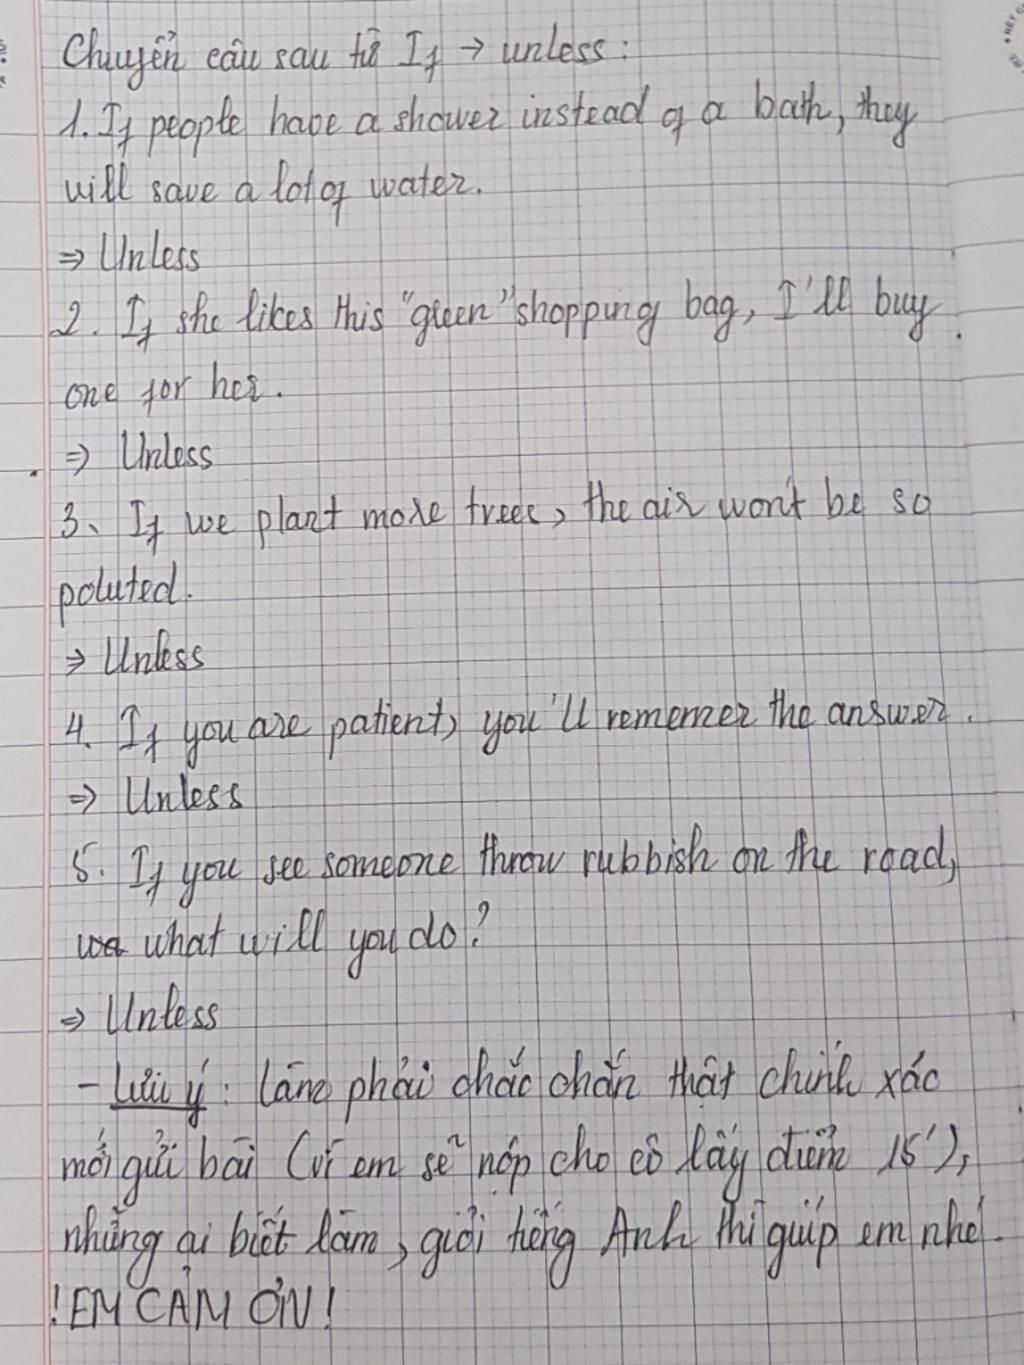 Chuyển câu sau từ If → unless:
1. If people have a shower instead of a bath, they
will save a lot of water.
⇒ Unless
2. If she likes this "green" shopping bag, I'll buy
one for her.
⇒ Unless
3. If we plant more trees, the air won't be so
poluted.
⇒ Unless
4. If you are patient, you'll rememer the answer.
⇒ Unless
5. If you see someone throw rubbish on the road,
what will you do?
⇒ Unless
- Lưu ý: Làm phải chắc chắn thật chính xác
mới gửi bài (vì em sẽ nộp cho cô lấy điểm 15'),
những ai biết làm, giỏi tiếng Anh thì giúp em nhé.
!EM CẢM ƠN!